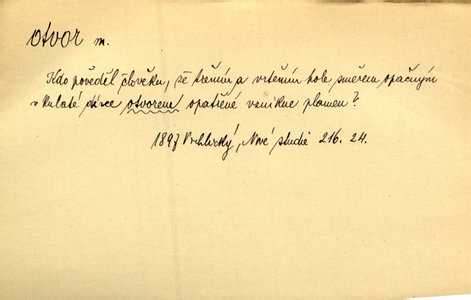 otvor m.
Kdo pověděl člověku, že třením a vrtěním hole směrem opačným
v kulaté dírce otvorem opatřené vznikne plamen?
1897 Vrchlický, Nové studie 216. 24.